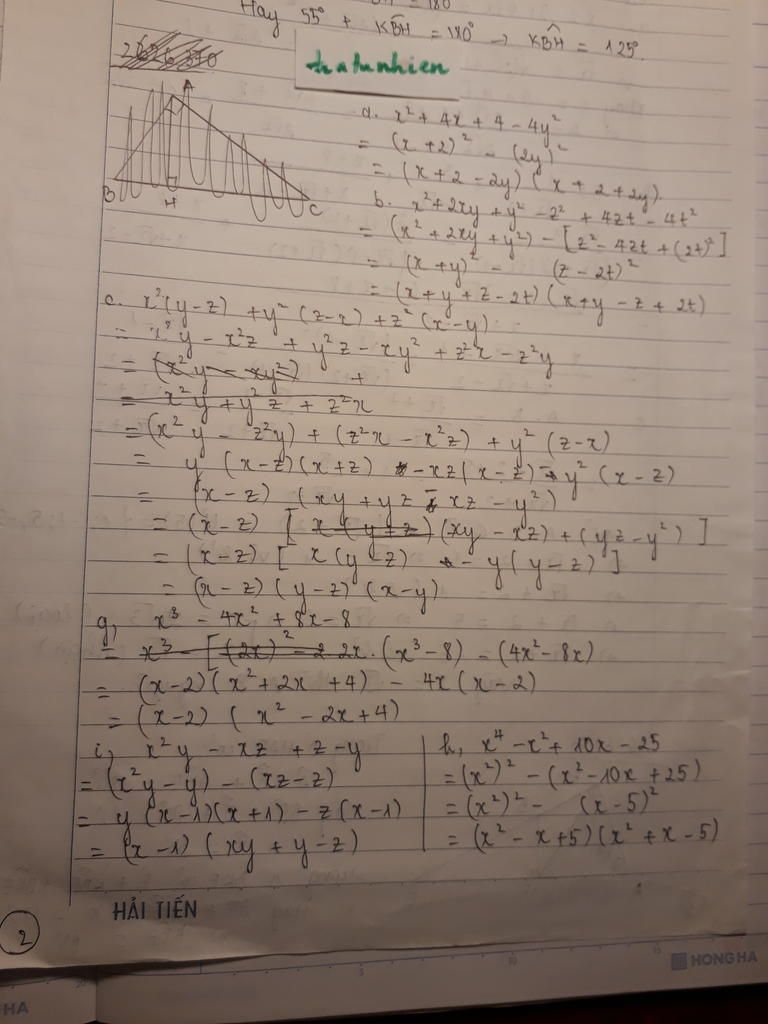 = 180
Hay 55° + KBH = 180° → KBH = 125°.
thatunhien
A
B
H
C
a. x² + 4x + 4 - 4y²
= (x+2)² - (2y)²
= (x+2-2y)(x+2+2y)
b. x²+2xy+y² - z² + 4zt - 4t²
= (x²+2xy+y²) - [z² - 4zt + (2t)²]
= (x+y)² - (z-2t)²
= (x+y+z-2t)(x+y-z+2t)
c. x²(y-z) + y²(z-x) + z²(x-y)
= x²y - x²z + y²z - xy² + z²x - z²y
= (x²y - xy²) +
= x²y + y²z + z²x
= (x²y - z²y) + (z²x - x²z) + y²(z-x)
= y (x-z)(x+z) - xz(x-z) - y²(x-z)
= (x-z) (xy + yz - xz - y²)
= (x-z) [ x(y+z) (xy - xz) + (yz - y²) ]
= (x-z) [ x(y-z) - y(y-z) ]
= (x-z)(y-z)(x-y)
g, x³ - 4x² + 8x - 8
= x³ - [(2x)² - 2 2x. (x³-8) - (4x²-8x)
= (x-2)(x²+2x+4) - 4x(x-2)
= (x-2) (x² - 2x+4)
i, x²y - xz + z - y
= (x²y - y) - (xz-z)
= y(x-1)(x+1) - z(x-1)
= (x-1) (xy + y - z)
h, x⁴ - x² + 10x - 25
= (x²)² - (x²-10x+25)
= (x²)² - (x-5)²
= (x² - x+5)(x² + x - 5)
HẢI TIẾN
2
HA
5
10
15
HONG HA